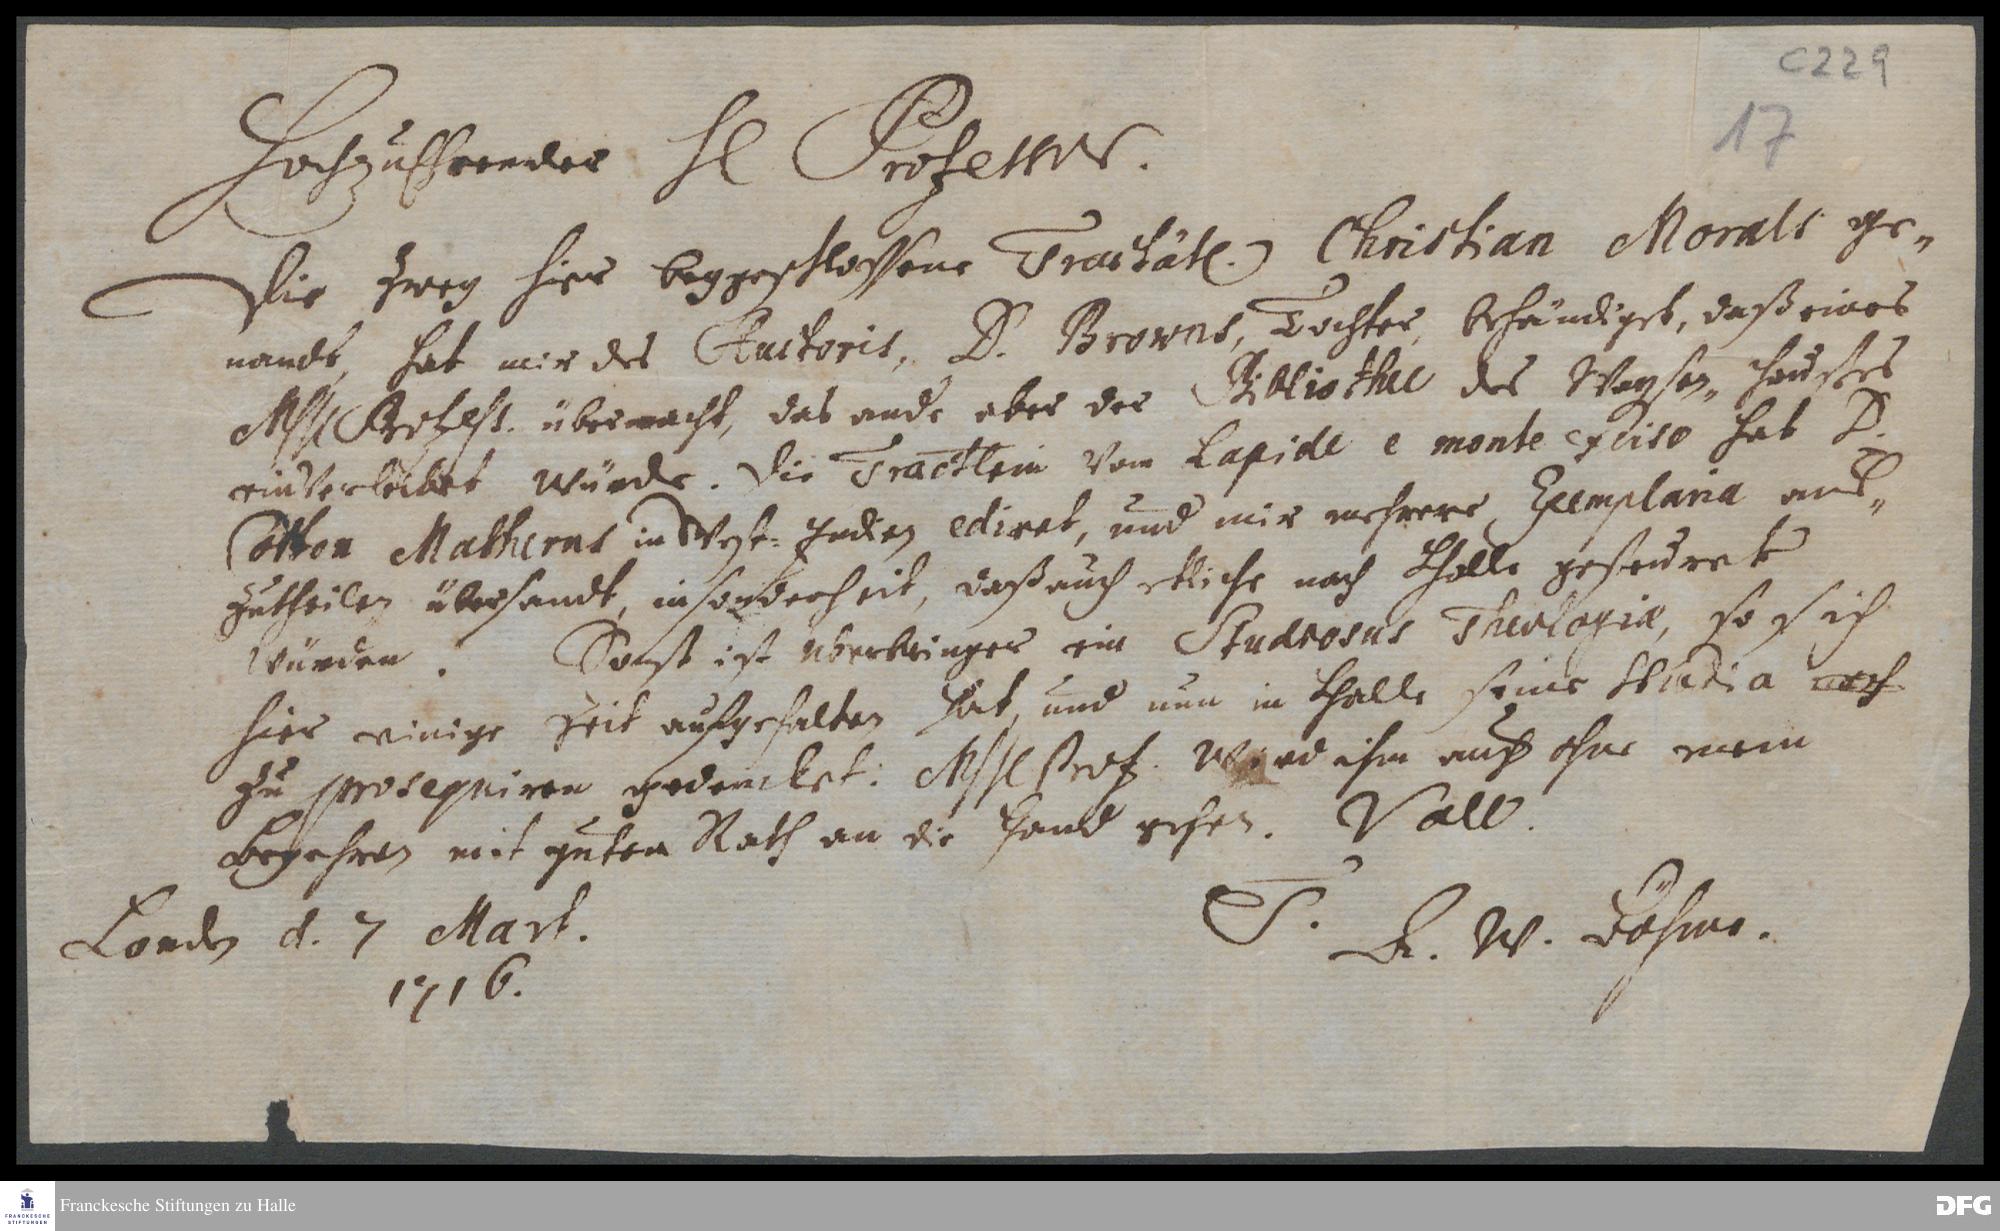 C229
17
Hochzuehrender H Professor.
Die zwey hier beygeschlossene Tractätl. Christian Morals ge-
nandt, hat mir des Auctoris, D. Browns, Tochter, behändiget, daß eines
MhH Profess. übermacht, das ande aber der Bibliothec des Waysen-Hauses
einverleibet würde. Die Tractlein vom Lapide e monte exciso hat D.
Cotton Matherus in West-Indien ediret, und mir mehrere Exemplaria aus-
zutheilen übersandt, insonderheit, daß auch etliche nach Halle gesandt
würden. Sonst ist uberbringer ein Studiosus Theologiæ, so sich
hier einige Zeit aufgehalten hat, und nun in Halle seine studia
zu prosequiren gedencket. MhH Prof. wird ihm auch ohne mein
Begehren mit gutem Rath an die Hand gehen. Vale.
London d. 7 Mart.
1716.
T.
A. W. Böhme.
Franckesche Stiftungen zu Halle
FRANCKESCHE
STIFTUNGEN
DFG